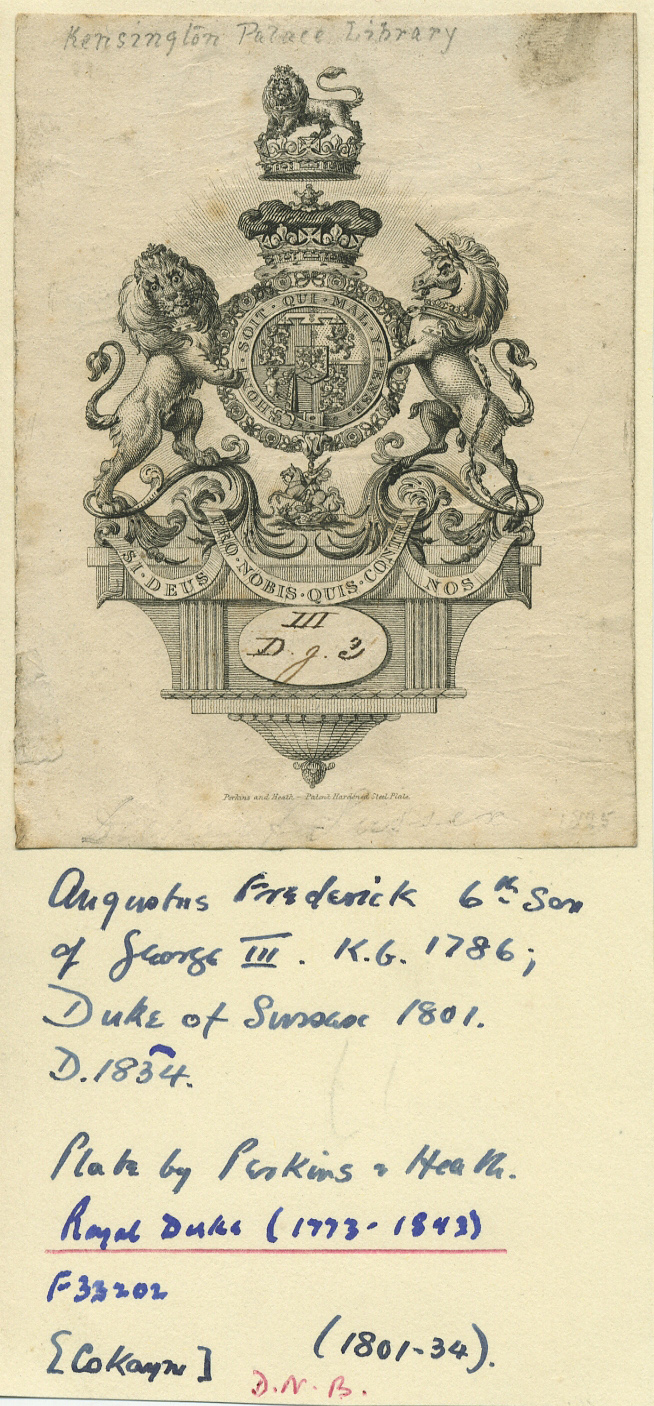 Kensington Palace Library
HONI · SOIT · QUI · MAL · Y · PENSE
SI · DEUS PRO · NOBIS · QUIS · CONTRA NOS
III
D. g. 3
Perkins and Heath - Patent Hardened Steel Plate.
1825
Augustus Frederick 6th Son
of George III. K.G. 1786;
Duke of Sussex 1801.
D. 1834.
Plate by Perkins & Heath.
Royal Duke (1773-1843)
F33202
(1801-34).
[CoKayne]
D.N.B.